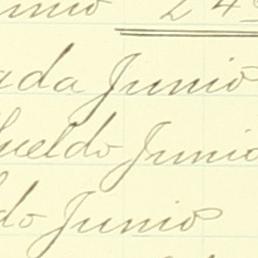 unio 24
ada Junio
ueldo Junio
do Junio